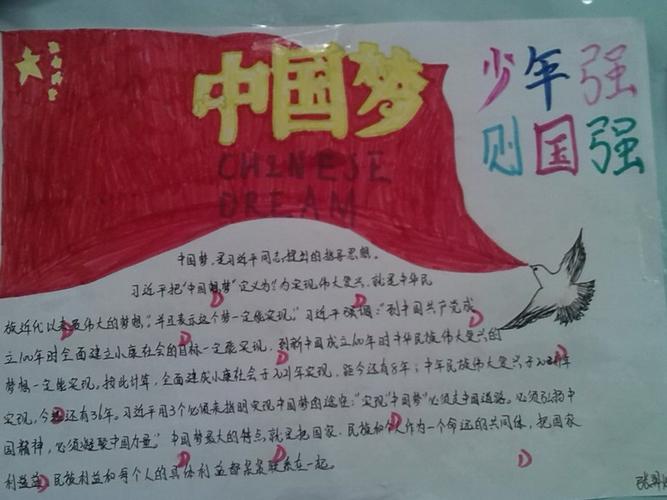 中国梦
CHINESE
DREAM
少年强
则国强
中国梦,是习近平同志提出的指导思想。
习近平把“中国梦”定义为“为实现伟大复兴,就是中华民
族近代以来最伟大的梦想,”并且表示这个梦一定能实现。”习近平强调:“到中国共产党成
立100年时全面建立小康社会的目标一定能实现,到新中国成立100年时中华民族伟大复兴的
梦想一定能实现,按此计算,全面建成小康社会于2021年实现,距今还有8年;中华民族伟大复兴于2049年
实现,今还有36年。习近平用3个必须来指明实现中国梦的途径:“实现中国梦”必须走中国道路。必须弘扬中
国精神,必须凝聚中国力量。”中国梦最大的特点,就是把国家、民族和个人作为一个命运的共同体,把国家
利益、民族利益和每个人的具体利益都紧紧联系在一起。